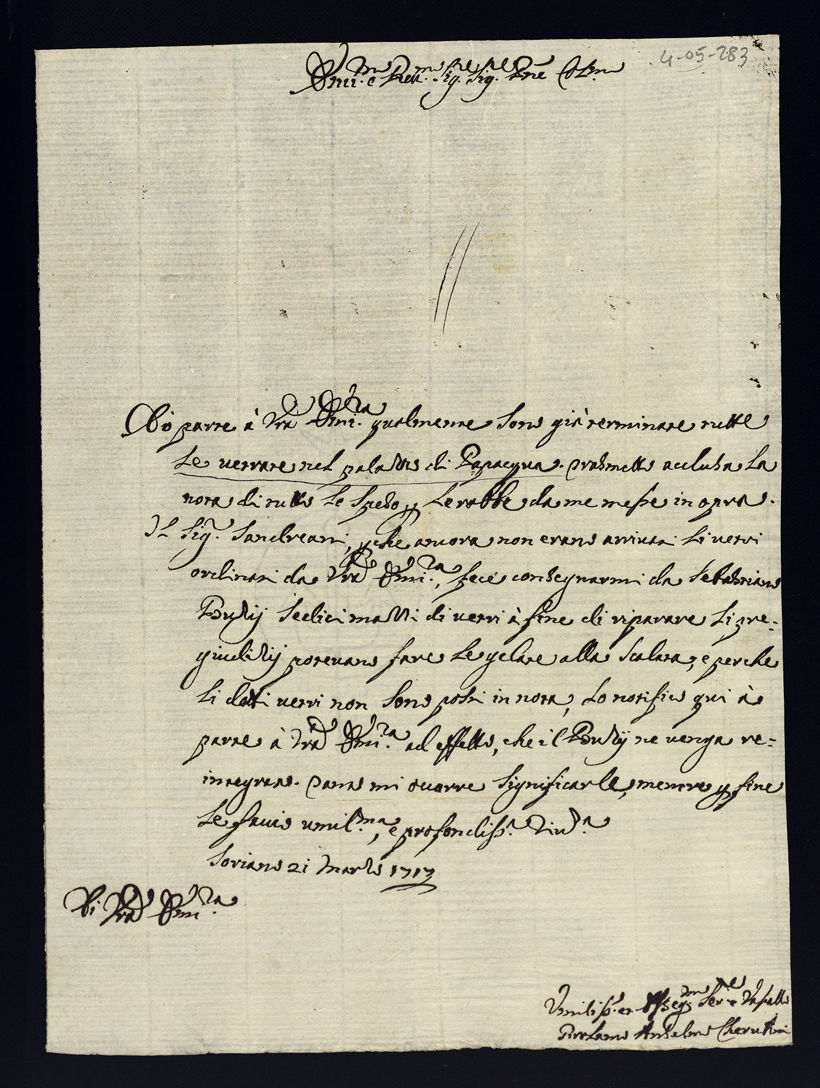 4-05-283
Emi.mo e Rev.mo Sig.re Sig.re Pne Col.mo
Dò parte à Vrà Emi.za qualmente sono già terminate tutte
le vetrate nel palazzo di Papacqua. trasmetto acclusa la
nota di tutto le speso, p le robbe da me messe in opra.
Il Sig.r Sandreani, pche ancora non erano arrivati li vetri
ordinati da Vrà Emi.za, fece consegnarmi da Sebastiano
sedici mazzi di vetri à fine di riparare li pre-
giudizij potevano fare le gelate alla Scalata; e perche
li detti vetri non sono posti in nota, lo notifico qui à
parte à Vrà Emi.za ad effetto, che il ne venga re=
integrato. tanto mi occorre significarle, mentre p fine
le faccio umil.ma, e profondiss.a Riv.a
Soriano 21 Marzo 1717
Di Vrà Emi.za
Umiliss.o et Osseq.mo Ser.re e Vassallo
Girolamo Anselmo Cherubini